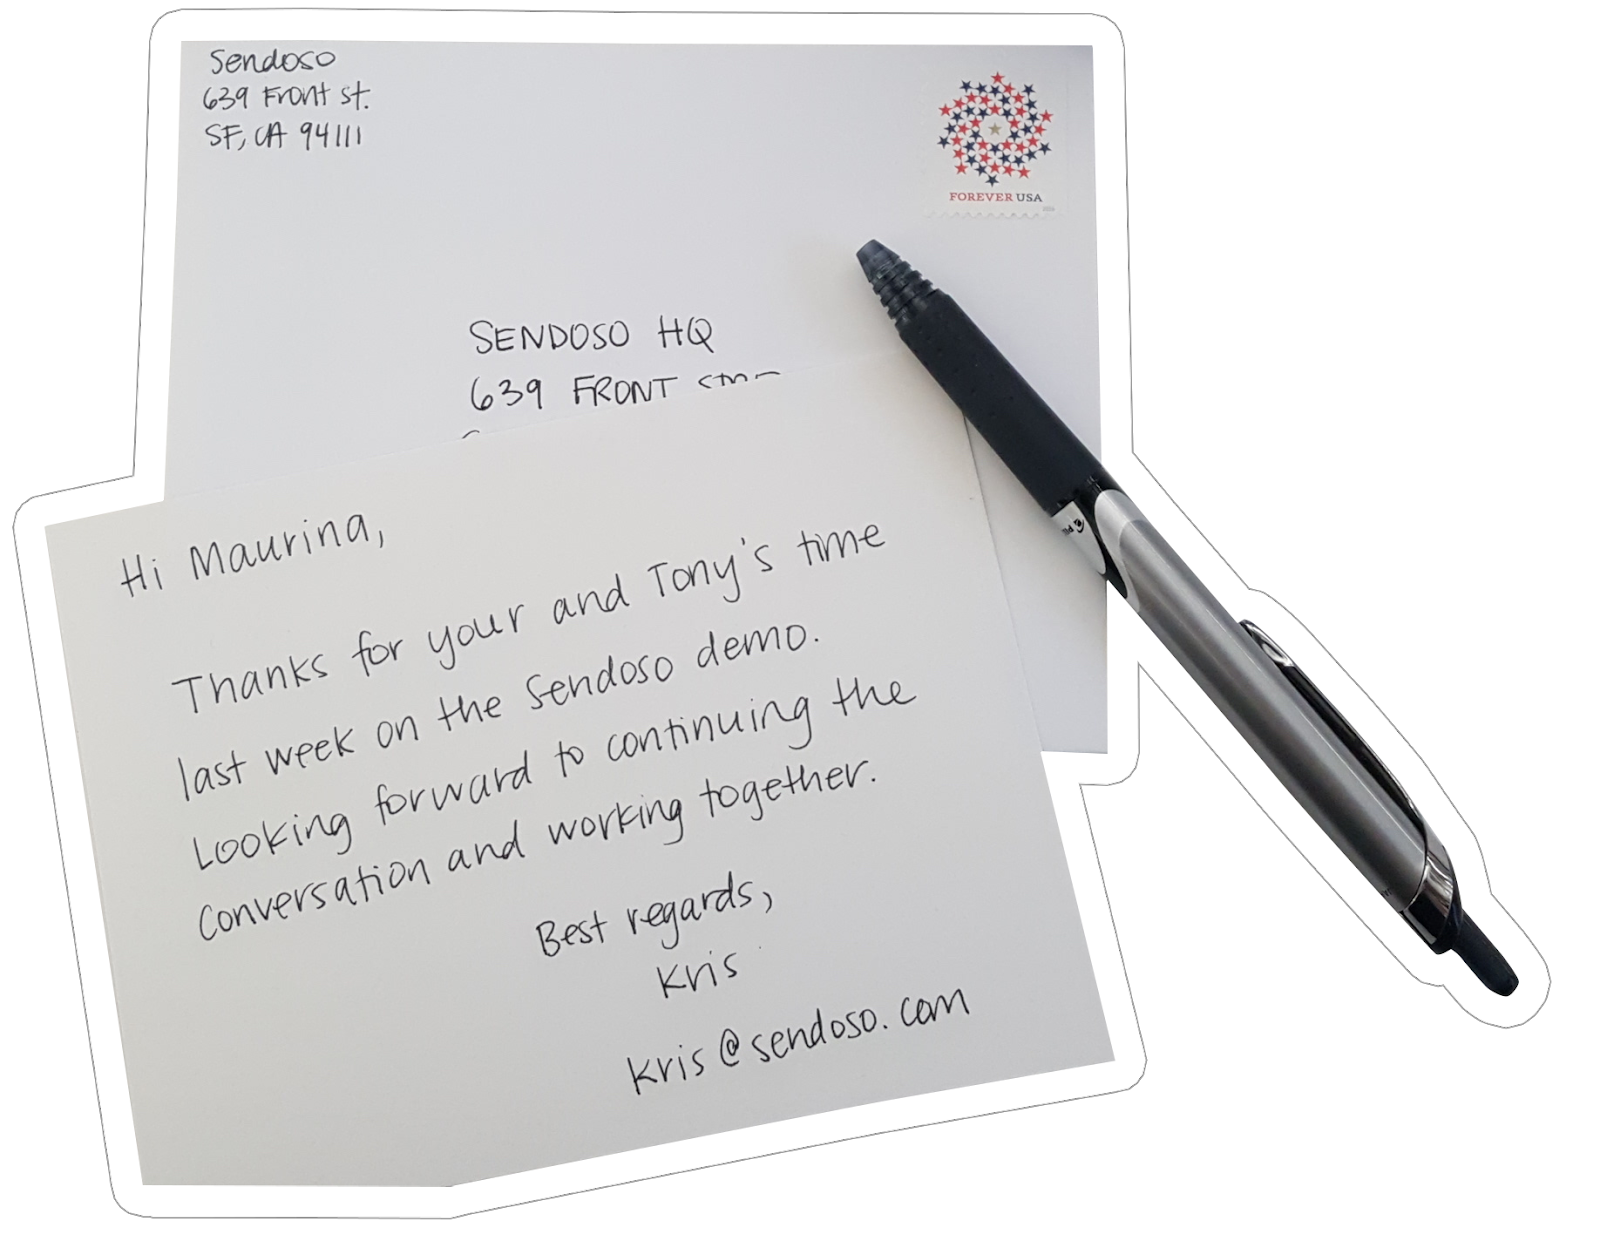 Sendoso
639 Front St.
SF, CA 94111
FOREVER USA
SENDOSO HQ
639 FRONT
Hi Maurina,
Thanks for your and Tony's time
last week on the Sendoso demo.
Looking forward to continuing the
conversation and working together.
Best regards,
Kris
kris@sendoso.com